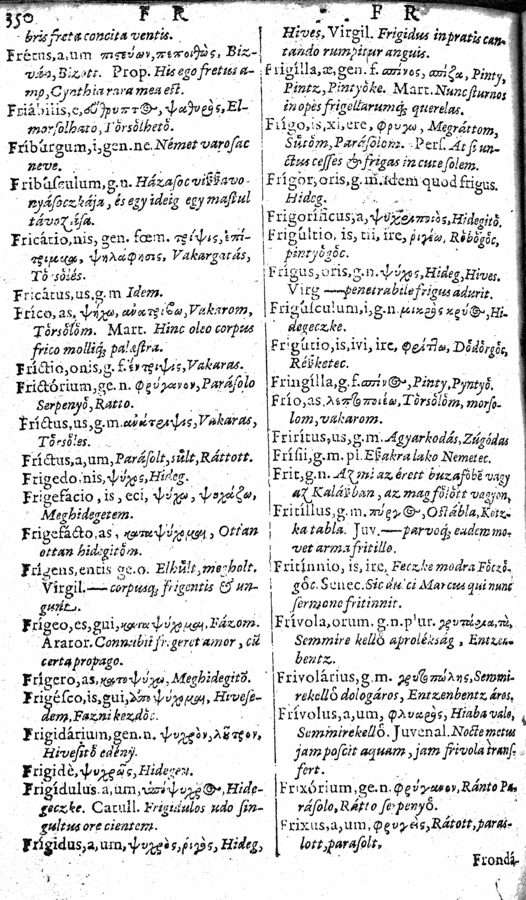 350 F R
bris freta concita ventis.
Frétus, a, um πιςεύων, πεποιθὼς, Biz-
ván, Bizott. Prop. His ego fretus a-
mo, Cynthia rara mea est.
Friábilis, e, ψαθυρὸς, El-
morsolhato, Tőrsőlhető.
Fríbúrgum, i, gen. ne. Német varosac
neve.
Fribúsculum, g. n. Házasoc
nyásoczkája, és egy ideig egy mastul
távozása.
Fricátio, nis, gen. fœm. τρίψις, ἐπί-
τριμμα, ψηλάφησις, Vakargatás,
Tőrsőlés.
Fricátus, us, g. m Idem.
Fríco, as, ψήχω, ἀνατρίβω, Vakarom,
Tőrsőlőm. Mart. Hinc oleo corpus
frico mollíq; palæstra.
Fríctio, onis, g. f. ἔντριψις, Vakaras.
Frictórium, ge. n. φρύγανον, Parásolo
Serpenyő, Ratto.
Fríctus, us, g. m. ἀνάτριψις, Vakarás,
Tőrsőles.
Fríctus, a, um, Parásolt, sűlt, Ráttott.
Frigedo, nis, ψύχος, Hideg.
Frigefácio, is, eci, ψύχω, ψυχάζω,
Meghidegetem.
Frigefácto, as, καταψύχομαι, Ottan
ottan hidegitőm.
Frígens, entis ge. o. Elhűlt, megholt.
Virgil. — corpusq; frigentis & un-
gunt.
Frígeo, es, gui, καταψύχομαι, Fázom.
Arator. Connubii frigeret amor, cű
certa propago.
Frígero, as, καταψύχω, Meghidegitő.
Frigésco, is, gui, ἀποψύχομαι, Hivese-
dem, Fazni kezdőc.
Frigidárium, gen. n. ψυχρὸν, λᾶτρον,
Hivesitő edény.
Frigidè, ψυχρῶς, Hidegen.
Frigídulus, a, um, Hide-
geczke. Catull. Frigidulos udo sin-
gultus ore cientem.
Frígidus, a, um, ψυχρὸς, ῥιγὸς, Hideg,
F R
Hives, Virgil. Frigidus in pratis can-
tando rumpitur anguis.
Frigílla, æ, gen. f. σπίνος, σπίζα, Pinty,
Pintz, Pintyőke. Mart. Nunc sturnos
inopes frigellarumq; querelas.
Frígo, is, xi, ere, φρυγω, Megráttom,
Sűtőm, Parásolom. Pers. At si un-
ctus cesses & frigas in cute solem.
Frígor, oris, g. m. Idem quod frigus.
Hideg.
Frigoríficus, a, ψυχροποιὸς, Hidegitő.
Frigúltio, is, tii, ire, ριγέω,
pintyőgőc.
Frigus, oris, g. n. ψύχος, Hideg, Hives.
Virg — penetrabile frigus adurit.
Frigúsculum, i, g. n. μικρὸς κρύ, Hi-
degeczke.
Frigútio, is, ivi, ire, Dődőrgőc,
Fringílla, g. f. Pinty, Pyntyő.
Frío, as, λεπτοποιέω, Tőrsőlőm, morso-
lom, vakarom.
Friritus, us, g. m. Agyarkodás, Zúgódas
Frísii, g. m. pl. lako Nemetec.
Frit, g. n. Az mi az érett buzaföbë vagy
az Kalásban, az mag fölött vagyon,
Fritíllus, g. m. πύργος, Ostábla, Kotz-
ka tabla. Juv. — parvoq; eadem mo-
vet arma fritillo.
Fritínnio, is, ire, Feczke modra
gőc. Senec. Sic dulci Marcus qui nunc
sermone fritinnit.
Frívola, orum. g. n. plur.
Semmire kellő aprolékság, Entzen-
bentz.
Frivolárius, g. m. Semmi-
rekellő dologáros, Entzenbentz áros,
Frívolus, a, um, φλυαρὸς, Hiaba valo,
Semmirekellő. Juvenal. Nocte metus
jam poscit aquam, jam frivola trans-
fert.
Frixórium, ge. n. φρύγανον, Ránto Pa-
rásolo, Rátto serpenyő.
Frixus, a, um, φρυγεὶς, Rátott, paras-
lott, parasolt.
Frondá-